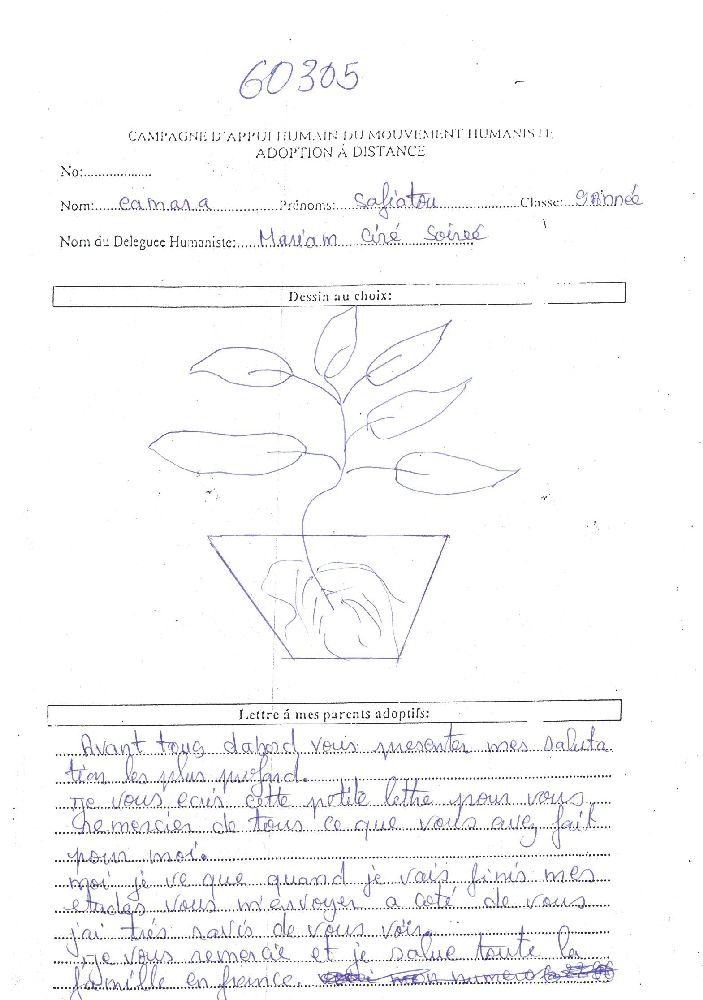 60305
CAMPAGNE D'APPUI HUMAIN DU MOUVEMENT HUMANISTE
ADOPTION À DISTANCE
No:...................
Nom:.....camara..................Prénoms:....Safiatou.....................Classe:..9année
Nom du Deleguee Humaniste:.....Mariam Ciré Soireé
Dessin au choix:
Lettre á mes parents adoptifs:
Avant tous dabord vous presenter mes saluta
tion les plus profond.
Je vous ecris cette petite lettre pour vous
remercier de tous ce que vous avez fait
pour moi.
moi je ve que quand je vais finis mes
etudes vous m'envoyer a coté de vous
j'ai très ravis de vous voir.
Je vous remercie et je salue toute la
famille en france. mon numero